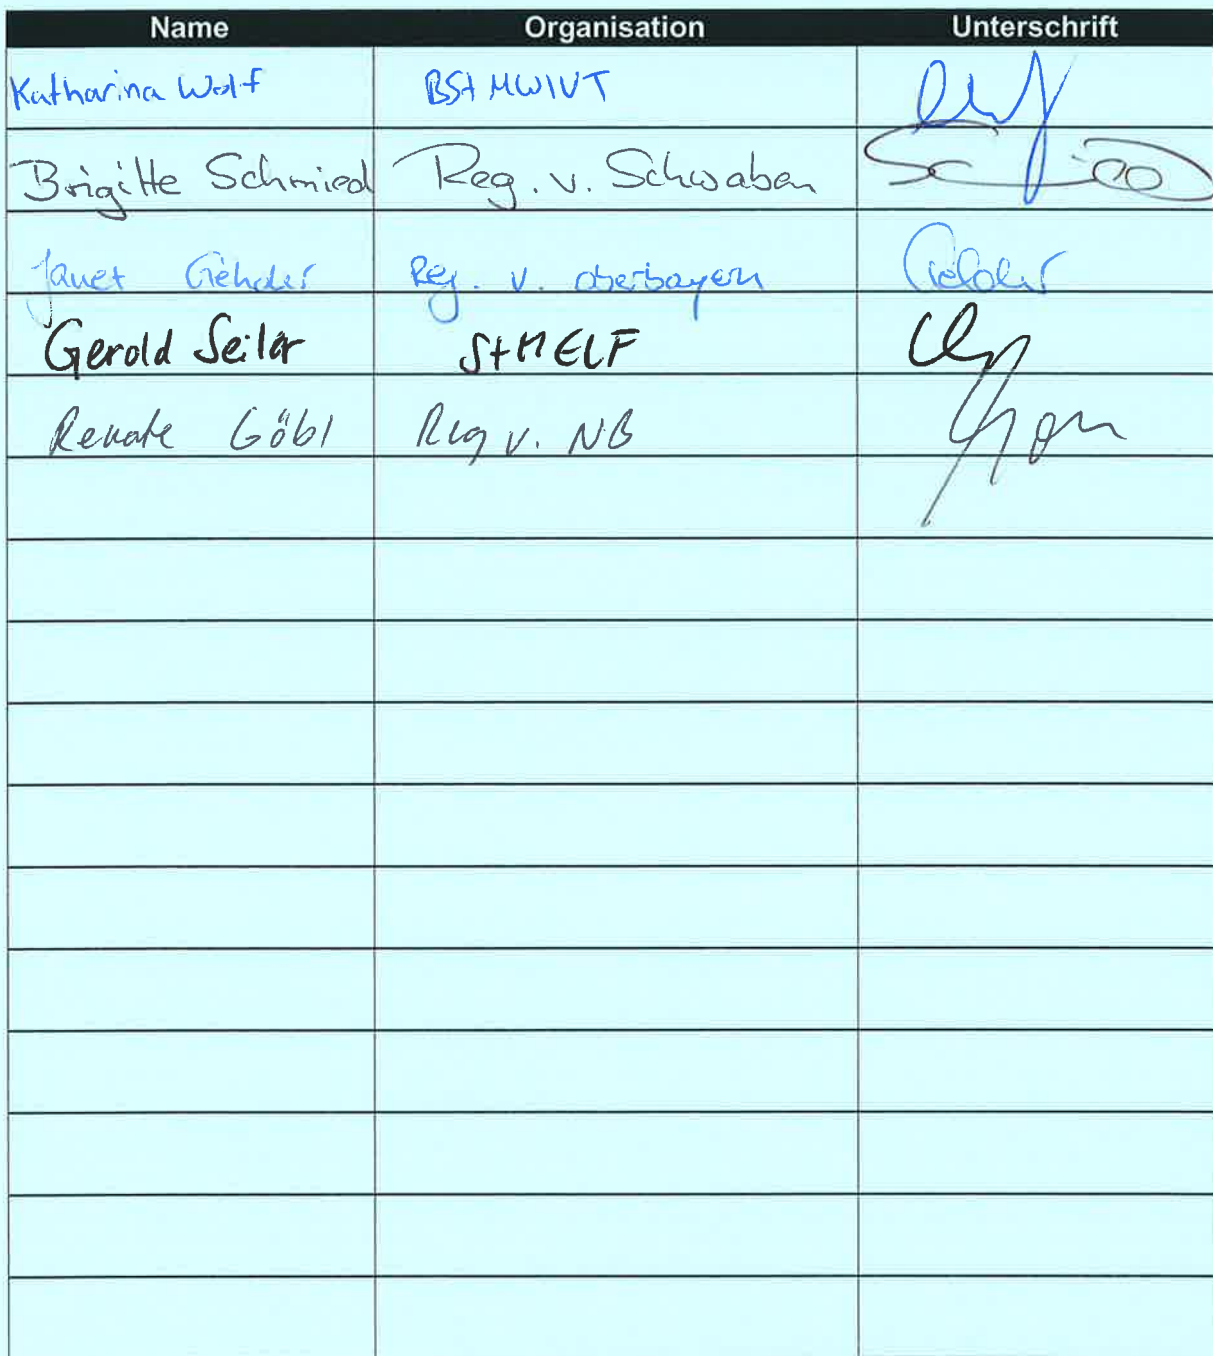 Name Organisation Unterschrift
Katharina Wolf BStMWIVT
Brigitte Schmied Reg. v. Schwaben Schmied
Janet Reg. v. Oberbayern
Gerold Seiler StMELF
Renate Göbl Reg v. NB